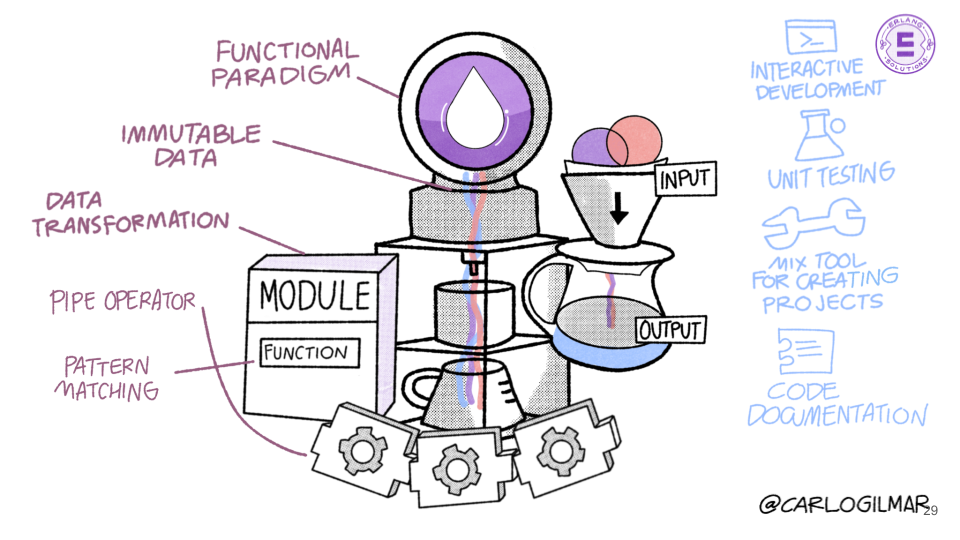 FUNCTIONAL
PARADIGM
IMMUTABLE
DATA
DATA
TRANSFORMATION
PIPE OPERATOR
PATTERN
MATCHING
MODULE
FUNCTION
INPUT
OUTPUT
>_
INTERACTIVE
DEVELOPMENT
UNIT TESTING
MIX TOOL
FOR CREATING
PROJECTS
CODE
DOCUMENTATION
ERLANG
SOLUTIONS
@CARLOGILMAR
29